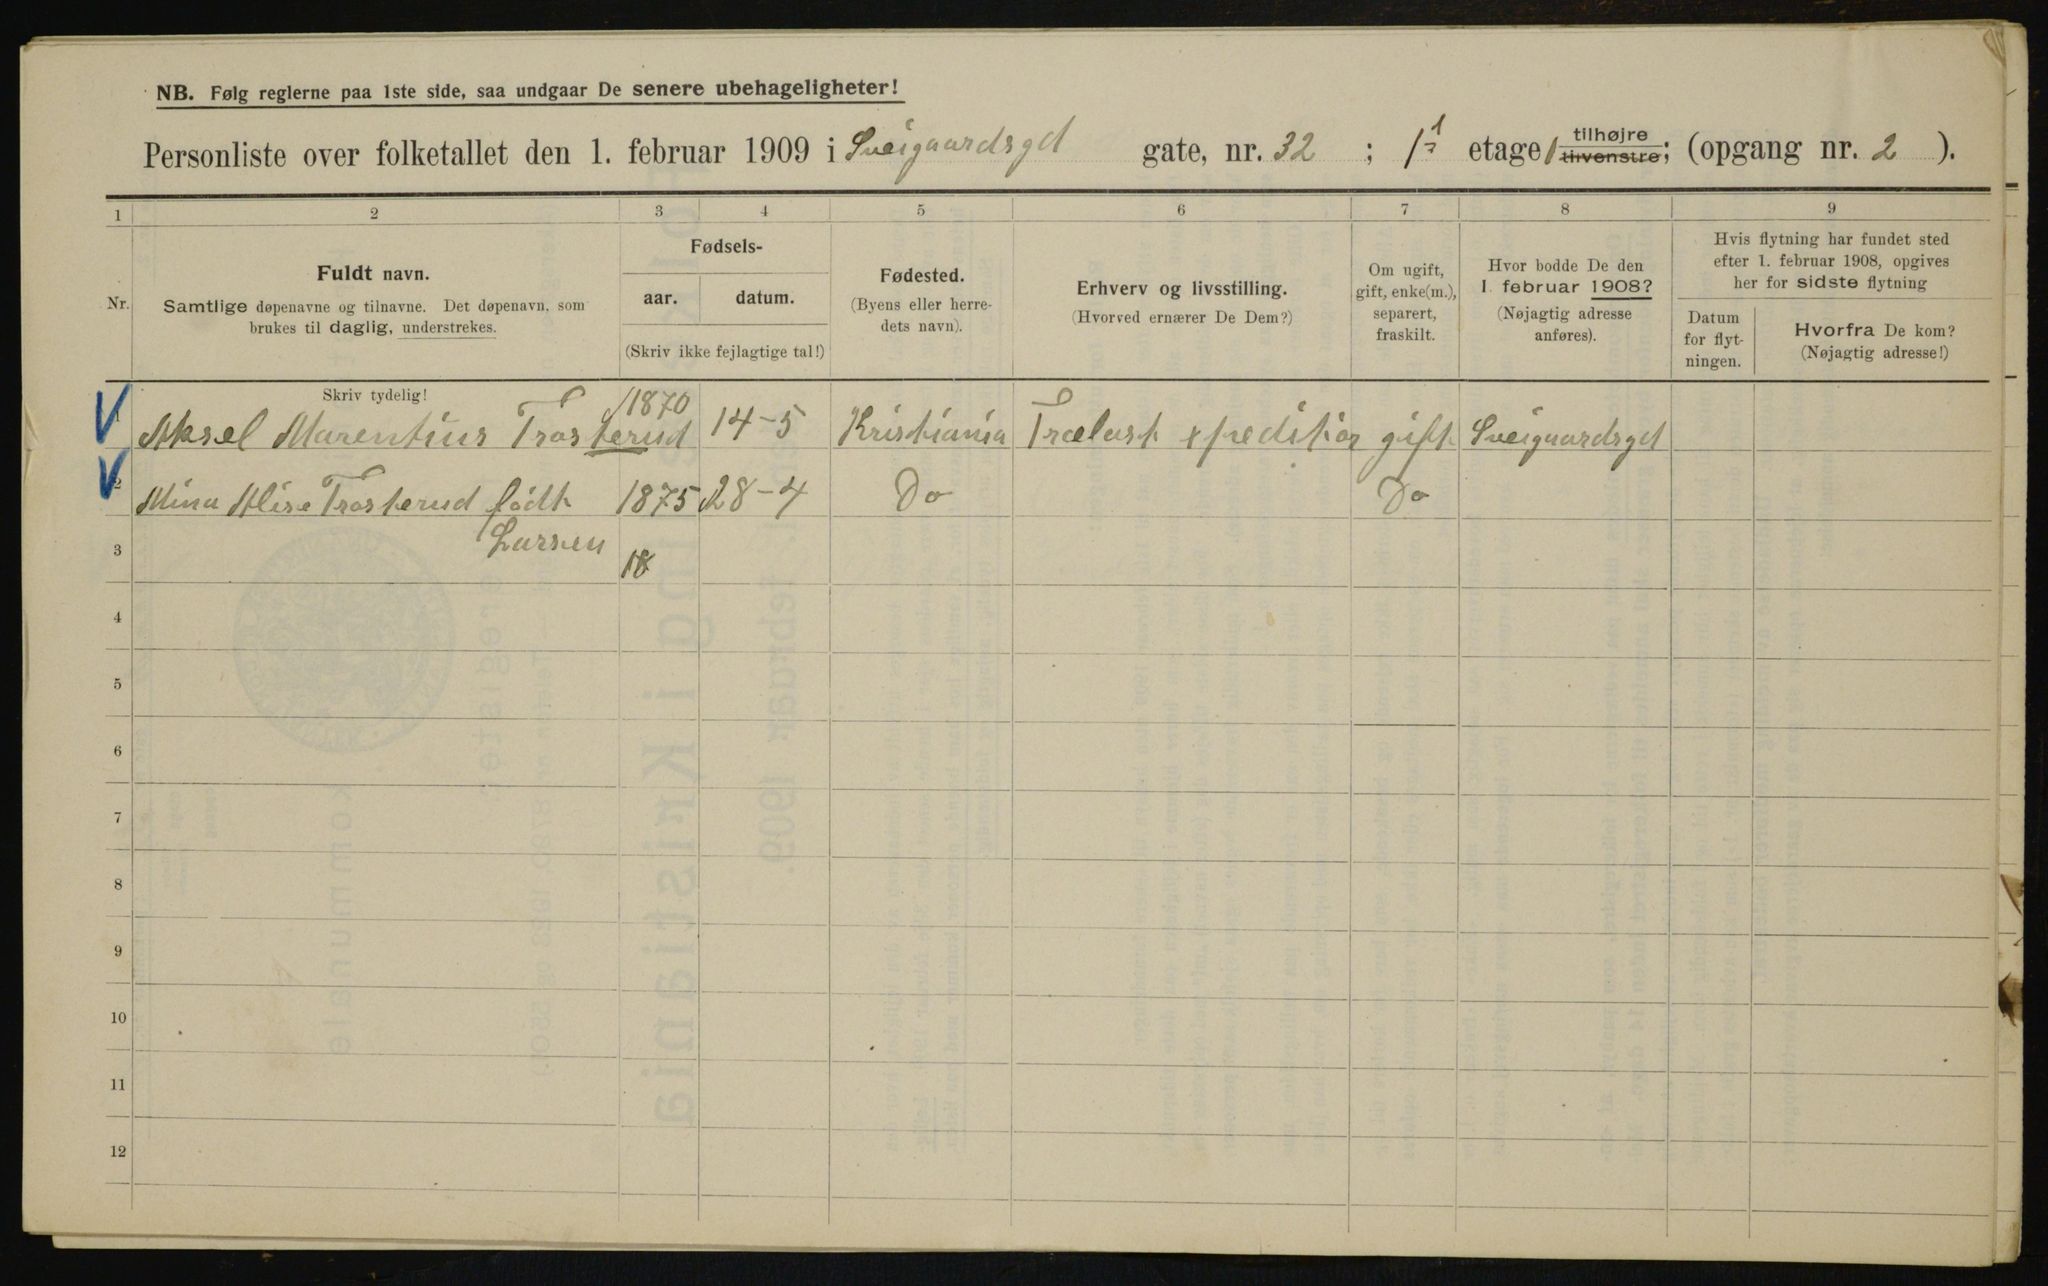 NB. Følg reglerne paa 1ste side, saa undgaar De senere ubehageligheter!
Personliste over folketallet den 1. februar 1909 i Sveigaardsgd gate, nr. 32 ; 1 etage 1 tilhøjre tilvenstre; (opgang nr. 2 ).
1 2 3 4 5 6 7 8 9
Nr.
Fuldt navn.
Samtlige døpenavne og tilnavne. Det døpenavn, som
brukes til daglig, understrekes.
Skriv tydelig!
Fødsels-
aar. datum.
(Skriv ikke fejlagtige tal!)
Fødested.
(Byens eller herre-
dets navn).
Erhverv og livsstilling.
(Hvorved ernærer De Dem?)
Om ugift,
gift, enke(m.),
separert,
fraskilt.
Hvor bodde De den
1. februar 1908?
(Nøjagtig adresse
anføres).
Hvis flytning har fundet sted
efter 1. februar 1908, opgives
her for sidste flytning
Datum
for flyt-
ningen.
Hvorfra De kom?
(Nøjagtig adresse!)
1 Aksel Marentius Trosterud 1870 14-5 Kristiania Trælast xpeditiør gift Sveigaardsgd
2 Mina Alise Trosterud født 1875 28-4 Do Do
Larsen
3 18
4
5
6
7
8
9
10
11
12